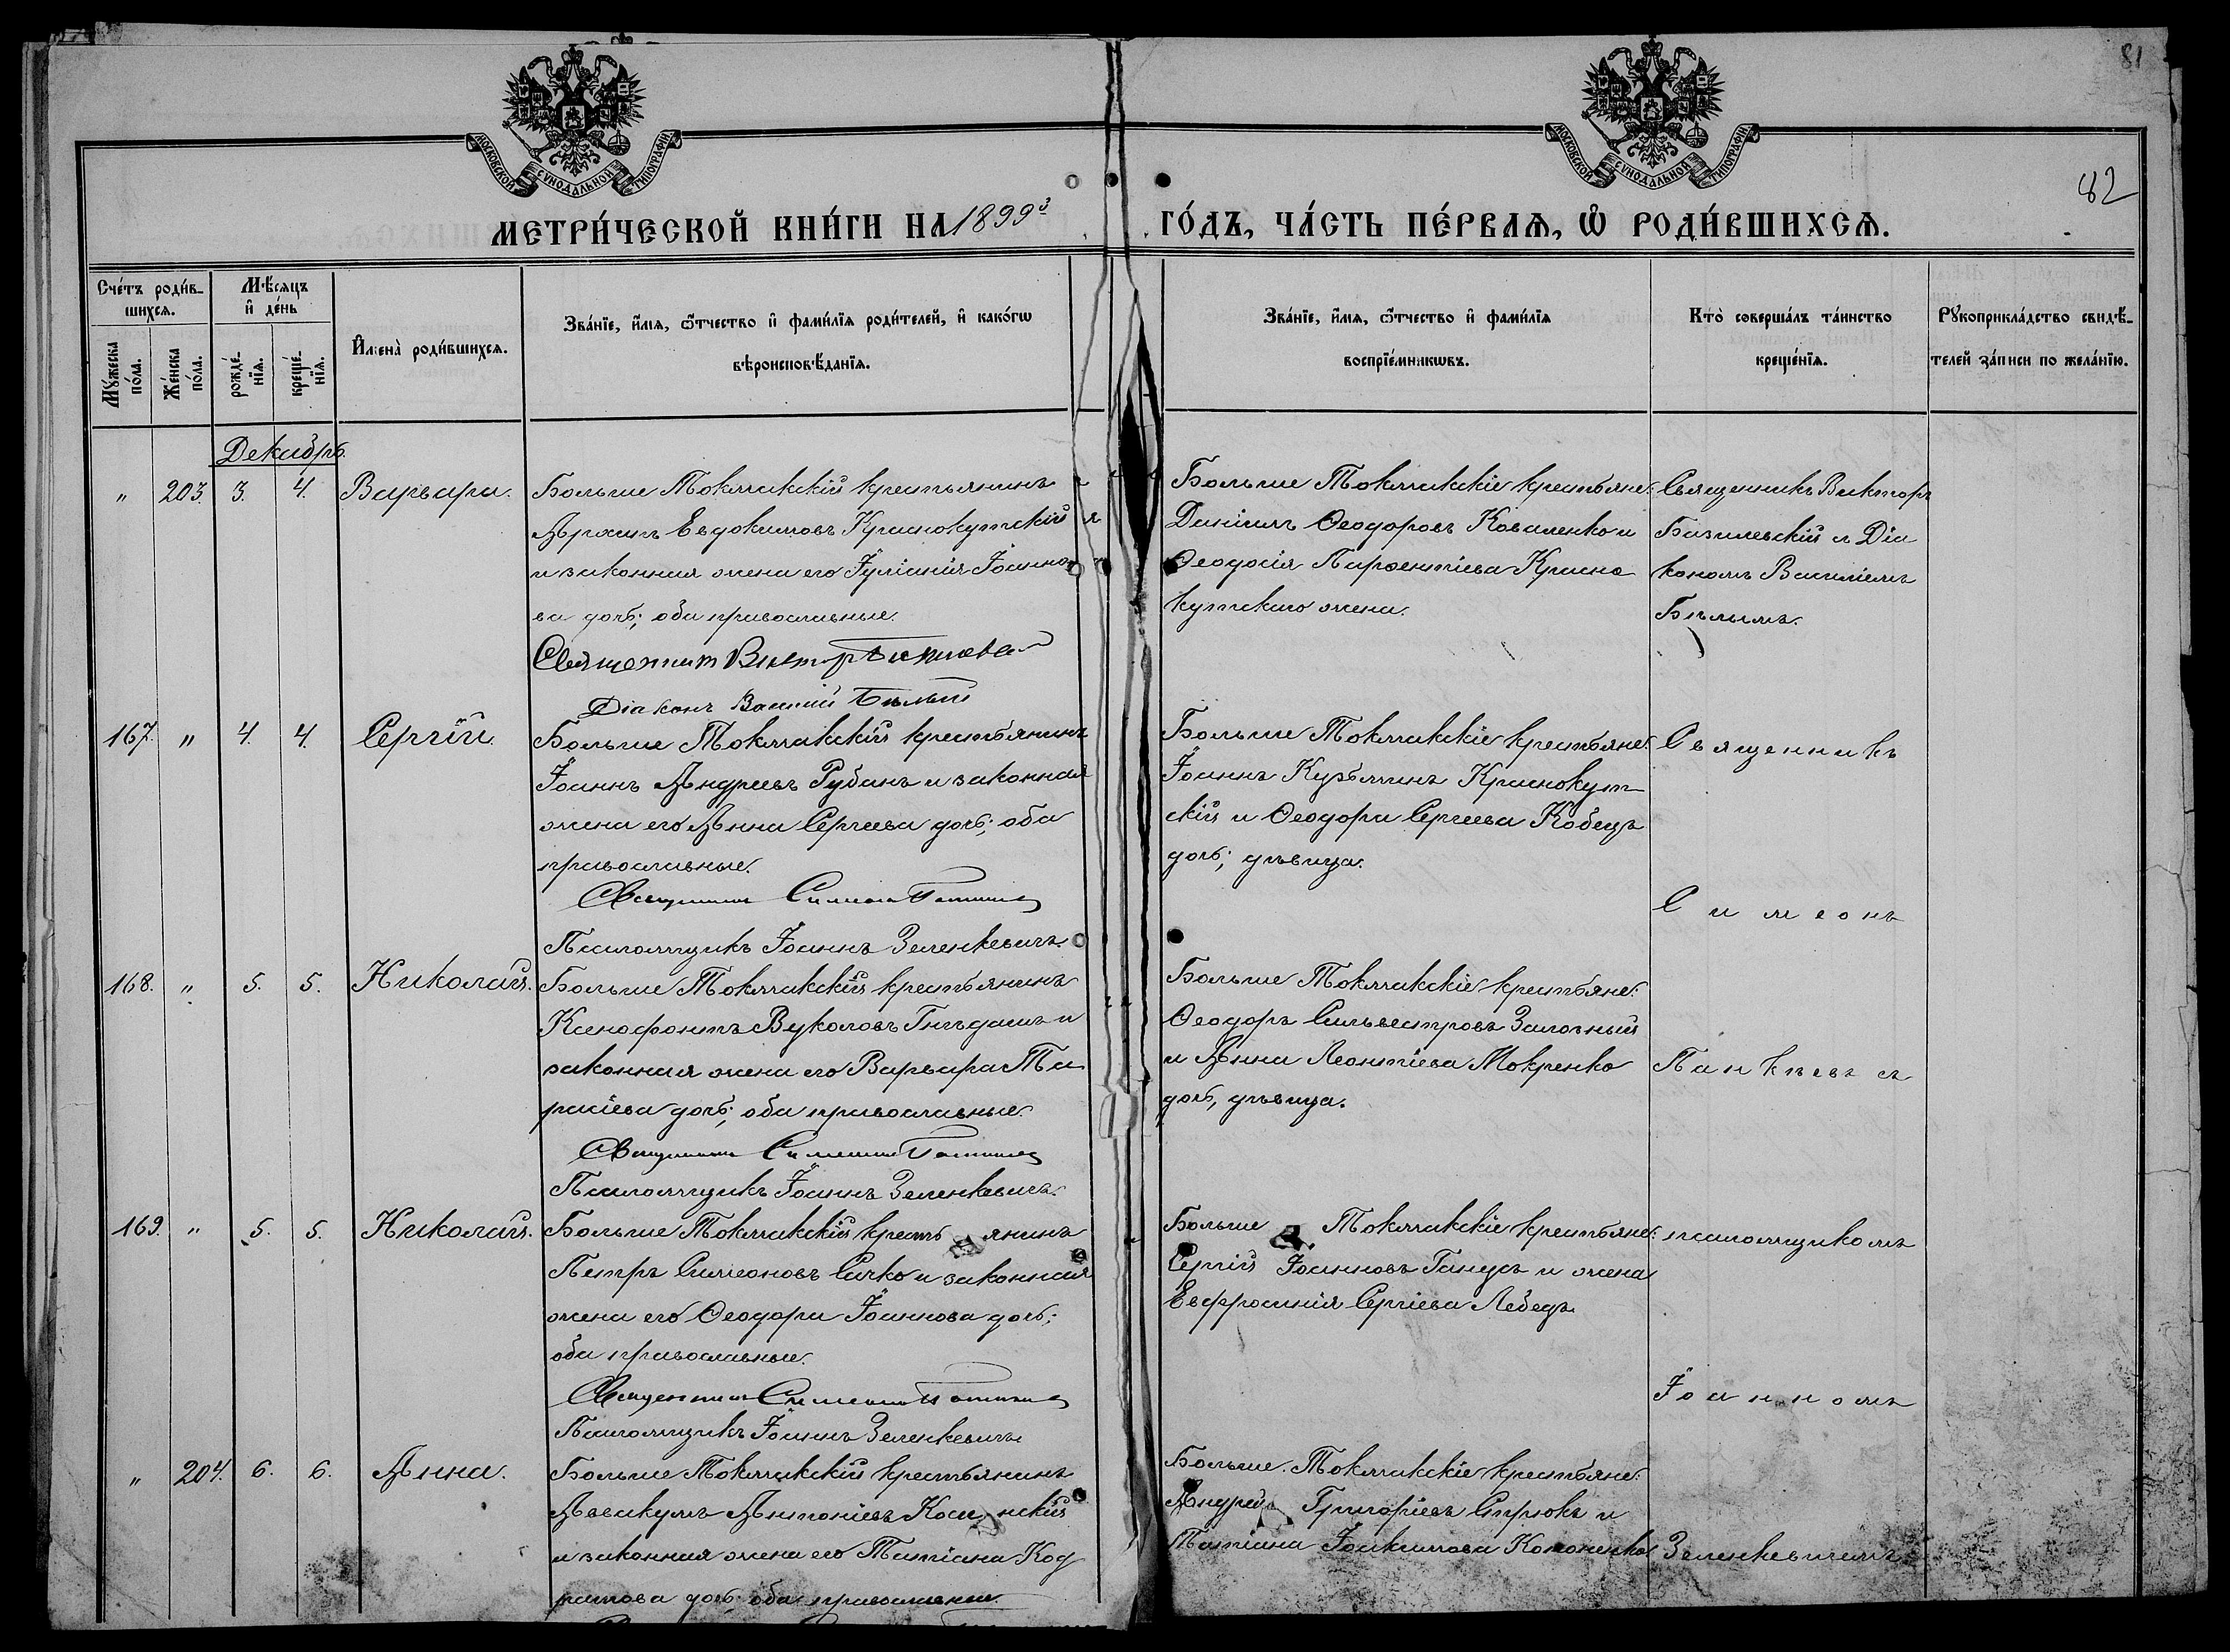 81
82
МОСКОВСКОЙ СѴНОДАЛЬНОЙ ТИПОГРАФІИ
МОСКОВСКОЙ СѴНОДАЛЬНОЙ ТИПОГРАФІИ
МЕТРИ́ЧЕСКОЙ КНИ́ГИ НА 1899й ГО́ДЪ, ЧА́СТЬ ПЕ́РВАѦ, Ѡ҆ РОДИ́ВШИХСѦ.
Сче́тъ роди́в-
шихся.
Мꙋ́жеска по́ла.
Же́нска по́ла.
Мѣ́сяцъ
и҆ де́нь
рожде́-
нїя.
креще́-
нїя.
И҆мена̀ роди́вшихся.
Зва́нїе, и҆́мя, ѻ҆́тчество и҆ фами́лїя роди́телей, и҆ како́гѡ
вѣроисповѣ́данїя.
Зва́нїе, и҆́мя, ѻ҆́тчество и҆ фами́лїя
воспрїе́мникѡвъ.
Кто̀ соверша́лъ та́инство
креще́нїя.
Рꙋкоприкла́дство свидѣ́-
телей за́писи по жела́нїю.
Декабрь.
" 203. 3. 4. Варвара.
Больше Токмакскій крестьянинъ
Архипъ Евдокимовъ Краснокутскій
и законная жена его Іуліанія Іоанно
ва дочь; оба православные.
Священник Виктор
Діаконъ Василій Бѣлый
Больше Токмакскіе крестьяне:
Даніилъ Ѳеодоровъ Коваленко и
Ѳеодосія Парѳентіева Красно
кутскаго жена.
Священникъ Викторъ
Базилевскій и Діа
кономъ Василіемъ
Бѣлымъ.
167. " 4. 4. Сергій.
Больше Токмакскій крестьянинъ
Іоаннъ Андреевъ Рубанъ и законная
жена его Анна Сергіева дочь; оба
православные.
Священник Симеон
Псаломщикъ Іоаннъ Зеленкевичъ.
Больше Токмакскіе крестьяне:
Іоаннъ Кузьминъ Краснокут
скій и Ѳеодора Сергіева Кобецъ
дочь; дѣвица.
Священникъ
Симеонъ
168. " 5. 5. Николай.
Больше Токмакскій крестьянинъ
Ксенофонтъ Вуколовъ Гнѣдашъ и
законная жена его Варвара Та
расіева дочь; оба православные.
Священник Симеон
Псаломщикъ Іоаннъ Зеленкевичъ.
Больше Токмакскіе крестьяне:
Ѳеодоръ Сильвестровъ Залозный
и Анна Леонтіева Мокренко
дочь, дѣвица.
Панкѣевъ съ
169. " 5. 5. Николай.
Больше Токмакскій крестьянинъ
Петръ Симеоновъ Сичко и законная
жена его Ѳеодора Іоаннова дочь;
оба православные.
Священник Симеон
Псаломщикъ Іоаннъ Зеленкевичъ
Больше Токмакскіе крестьяне:
Сергій Іоанновъ Ганусъ и жена
Евфросинія Сергіева Лебедь
псаломщикомъ
Іоанномъ
" 204. 6. 6. Анна.
Больше Токмакскій крестьянинъ
Аввакумъ Антоніевъ
и законная жена его Татіана Код
ратова дочь; оба православные.
Больше Токмакскіе крестьяне:
Андрей Григоріевъ Сирюкъ и
Татіана Іоакимова Кононенко
Зеленкевичемъ